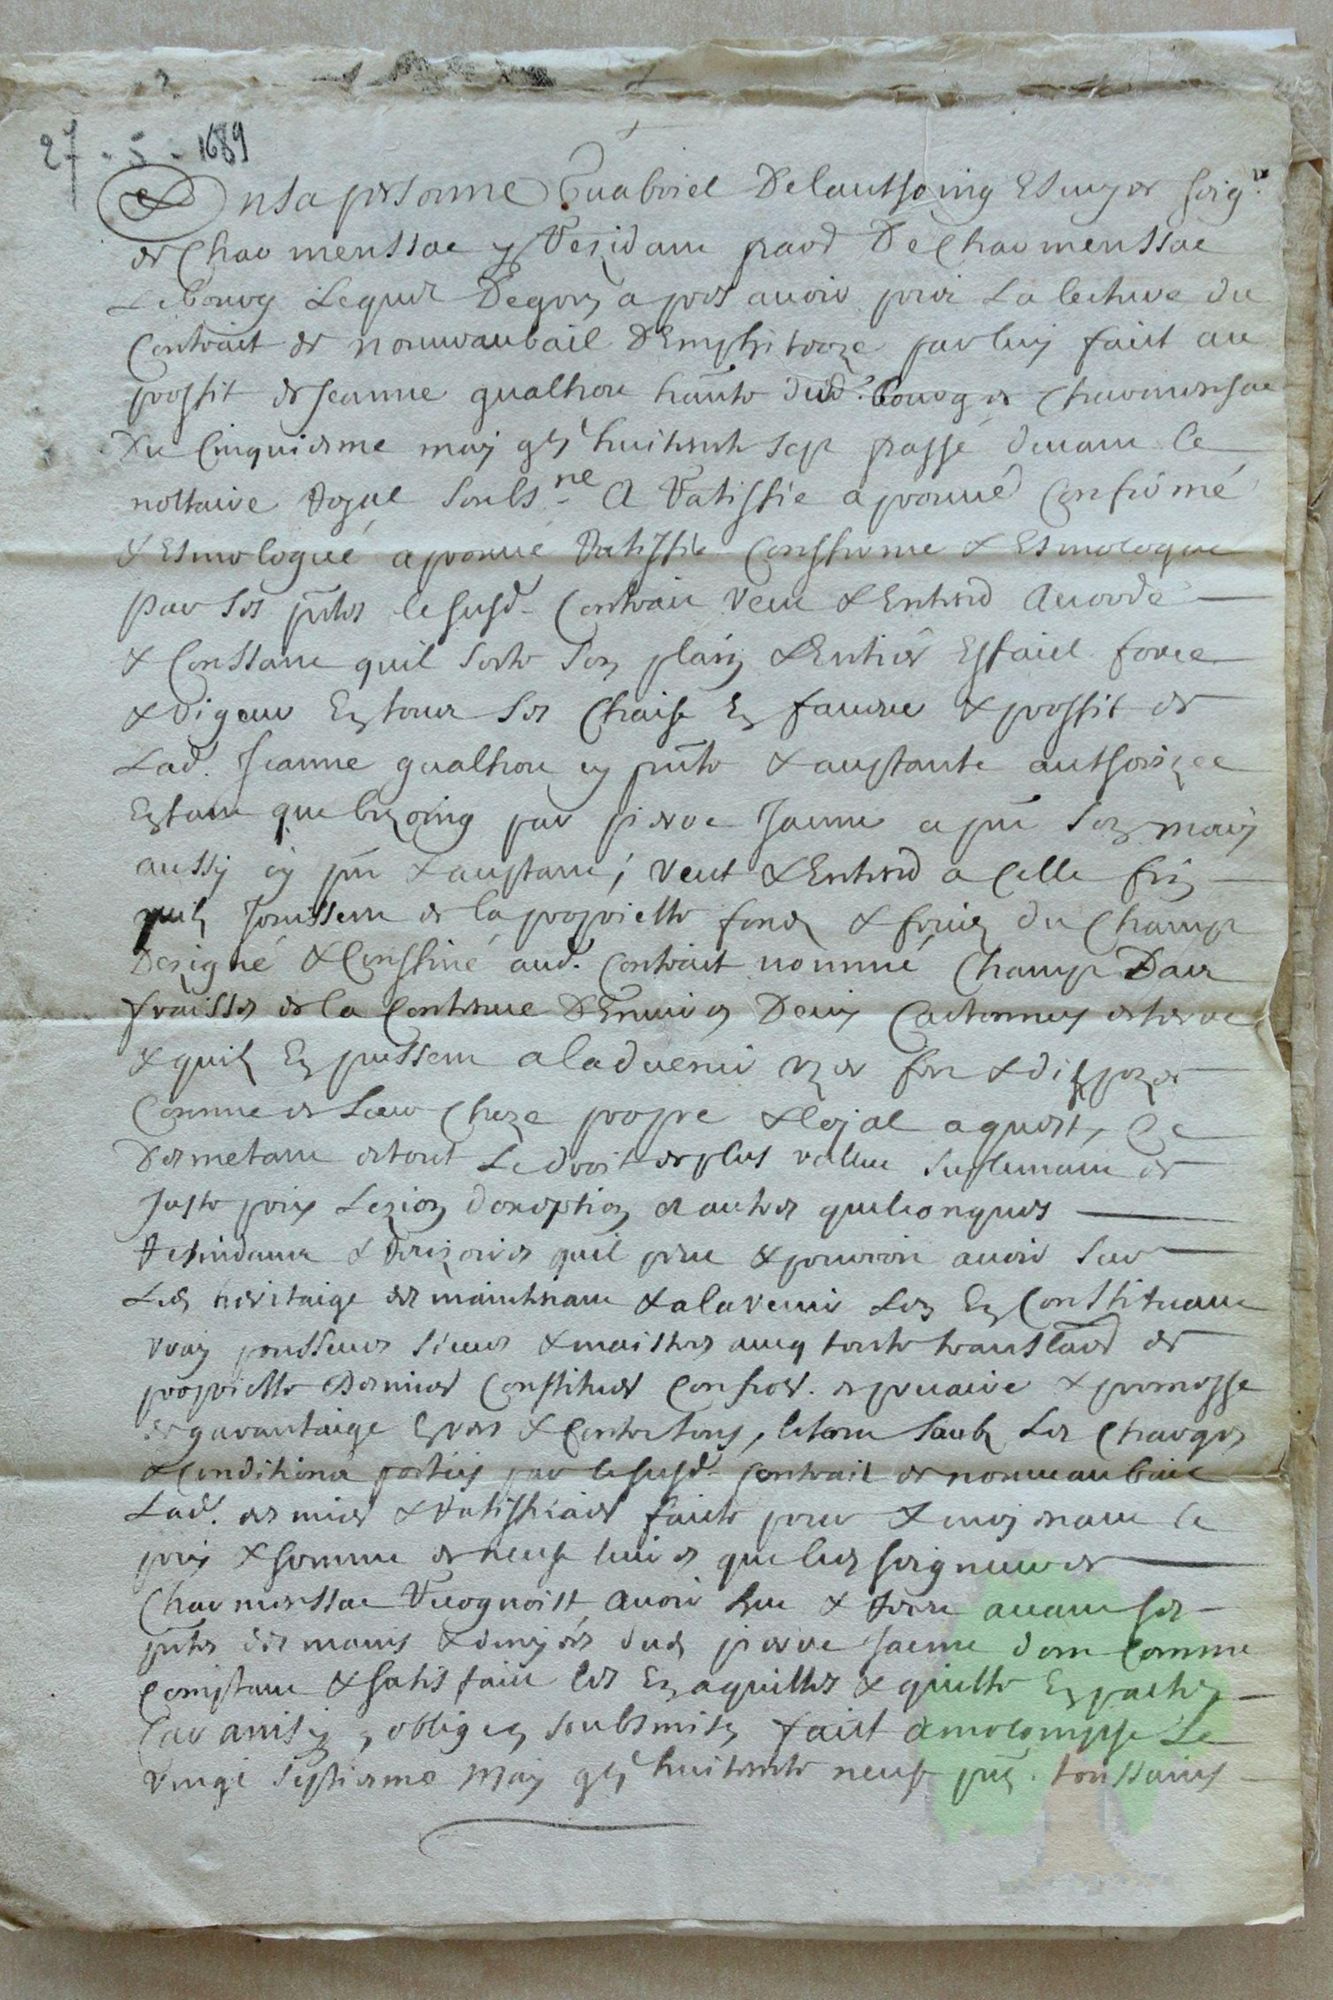 27-5-1689
En sa personne Guabriel Delauthoing Escuyer seigr
de Charmenssac y Rezidant par.d De Charmenssac
Le bourg Lequel De gon apres avoir prins La lecture du
Contrait de nouveau bail D'Emphiteoze par luy faict au
proffit de Jeanne gualhou hante dud. bourg de Charmenssac
Du Cinquiesme may huitante sept passé devant le
nottaire Royal soubsne A Ratiffié aprouvé Confirmé
& Esmologué aprouve Ratiffie Conffirme & Esmologue
Par ses pntes le susd. Contrait Veut & Entend Acorde
& Conssant quil sorte son plain & Entier Effaict force
& Vigeur En toutz ses Chaifz En faveur & proffit de
Lad. Jeanne gualhou cy pnte & authorizee
Estant que bezoing par pierre Jaime a pnt son mary
aussy cy pnt & Veut & Entend a Celle fin
quilz Jouissent de la proprietté fondz & fruictz du Champ
Dezigné & Confiné aud. Contrait nommé Champ Daux
fraisses de la Contenue D'Environ Deux Cartonnys de terre
& quilz En puissent a ladvenir uzer fere & dispozer
Comme de Leur Choze propre & Loyal aquest, Ce
Desmetant de tout Le droit de plus vallue suplemant de
Juste prix Lezion deception & autres quelconques
Resindantz & Rezoires quil peut & pourroit avoir sur
Led. heritaige des maintenant & a lavenir Les En Constituant
vray pousseurs sieurs & maistres aveq toute translaōn de
proprietté Desmieōn Constituōn precaire & promesse
de guarantaige Envers & Contre tous, Soubz Les Charges
& Conditions portées par le susd. Contrait de nouveau bail
Lad. desmieōn & Ratiffieaōn faicte pour & moyenant le
prix & somme de neuf livres que led. seigneur de
Charmenssac Recognoist avoir heu & Receu avant ses
pntes des mains & deniers dud. pierre Jaime dont Comme
Comptant & satisfaict les En aquittes & quitte En pache
Car ainsin obligen soubsmisn faict Le
vingt septiesme May huitante neuf pns. toussains